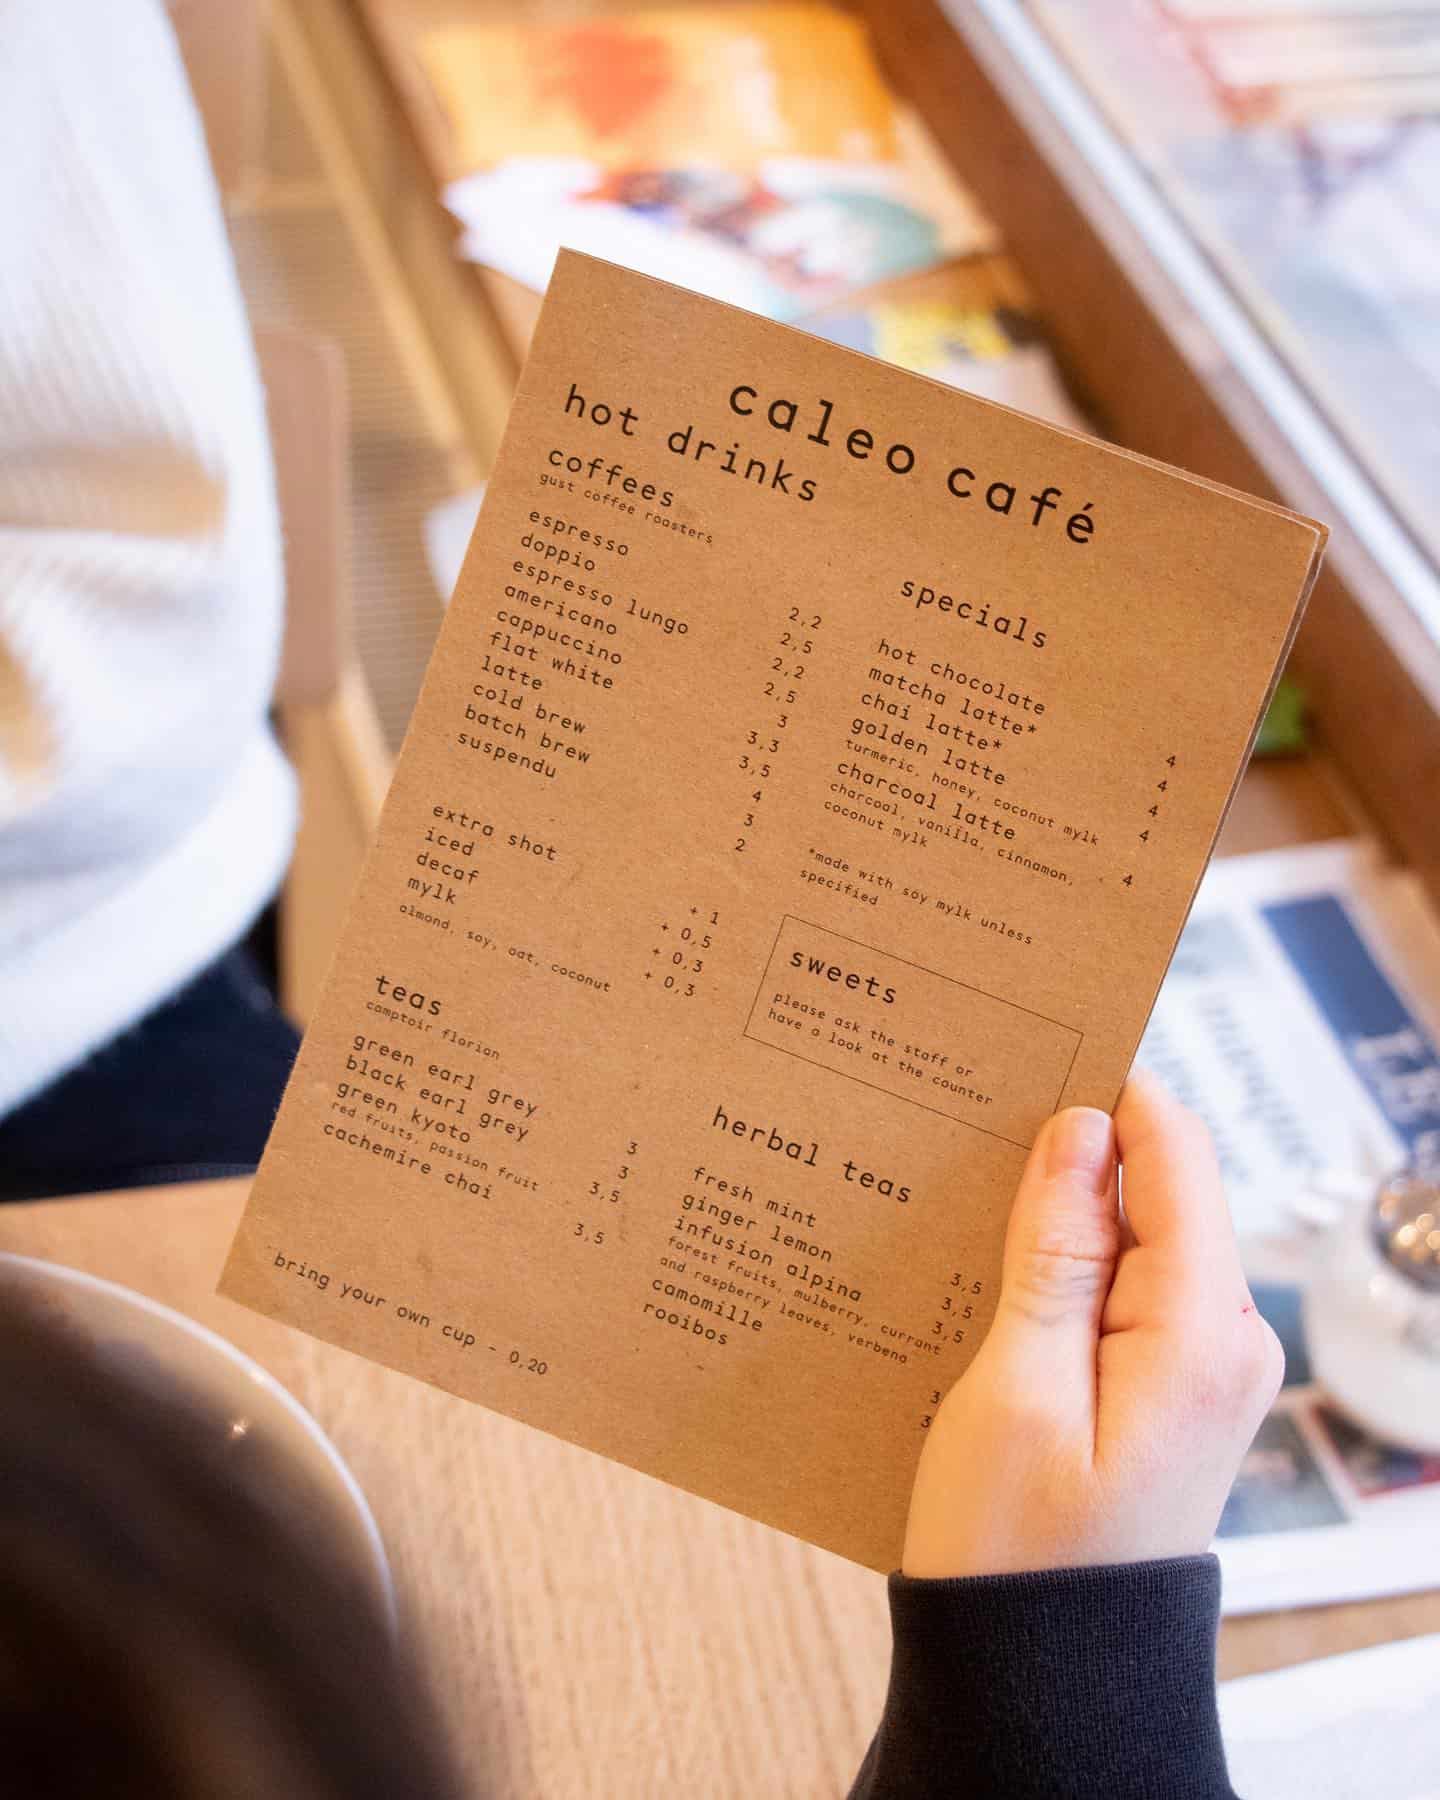 caleo café
hot drinks
coffees
gust coffee roasters
espresso 2,2
doppio 2,5
espresso lungo 2,2
americano 2,5
cappuccino 3
flat white 3,3
latte 3,5
cold brew 4
batch brew 3
suspendu 2
extra shot + 1
iced + 0,5
decaf + 0,3
mylk + 0,3
almond, soy, oat, coconut
teas
comptoir florian
green earl grey 3
black earl grey 3
green kyoto 3,5
red fruits, passion fruit
cachemire chai 3,5
bring your own cup - 0,20
specials
hot chocolate 4
matcha latte* 4
chai latte* 4
golden latte 4
turmeric, honey, coconut mylk
charcoal latte 4
charcoal, vanilla, cinnamon,
coconut mylk
*made with soy mylk unless
specified
sweets
please ask the staff or
have a look at the counter
herbal teas
fresh mint 3,5
ginger lemon 3,5
infusion alpina 3,5
forest fruits, mulberry, currant
and raspberry leaves, verbena
camomille 3
rooibos 3